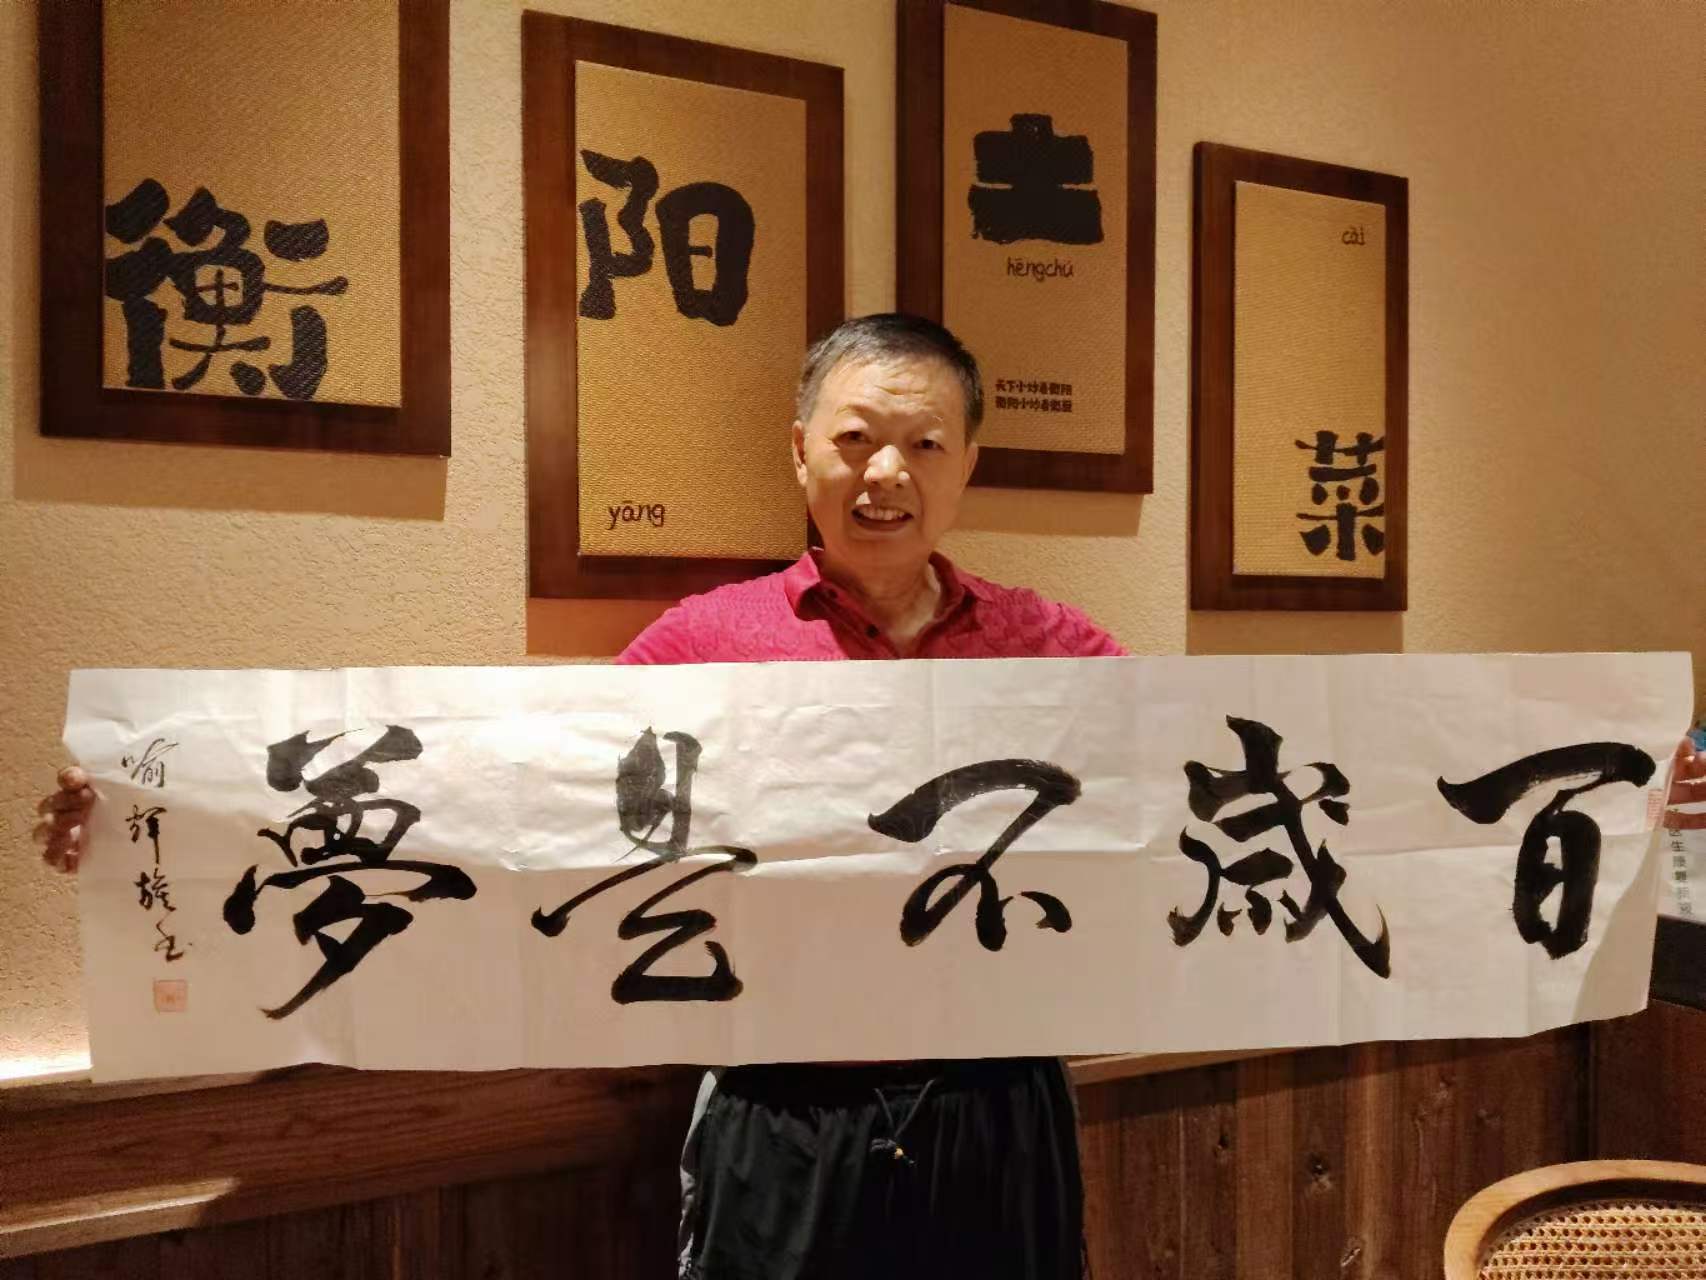 衡
阳
yāng
土
hēngchú
天下小炒看衡阳
衡阳小炒看衡厨
cài
菜
百歲不是夢
喻